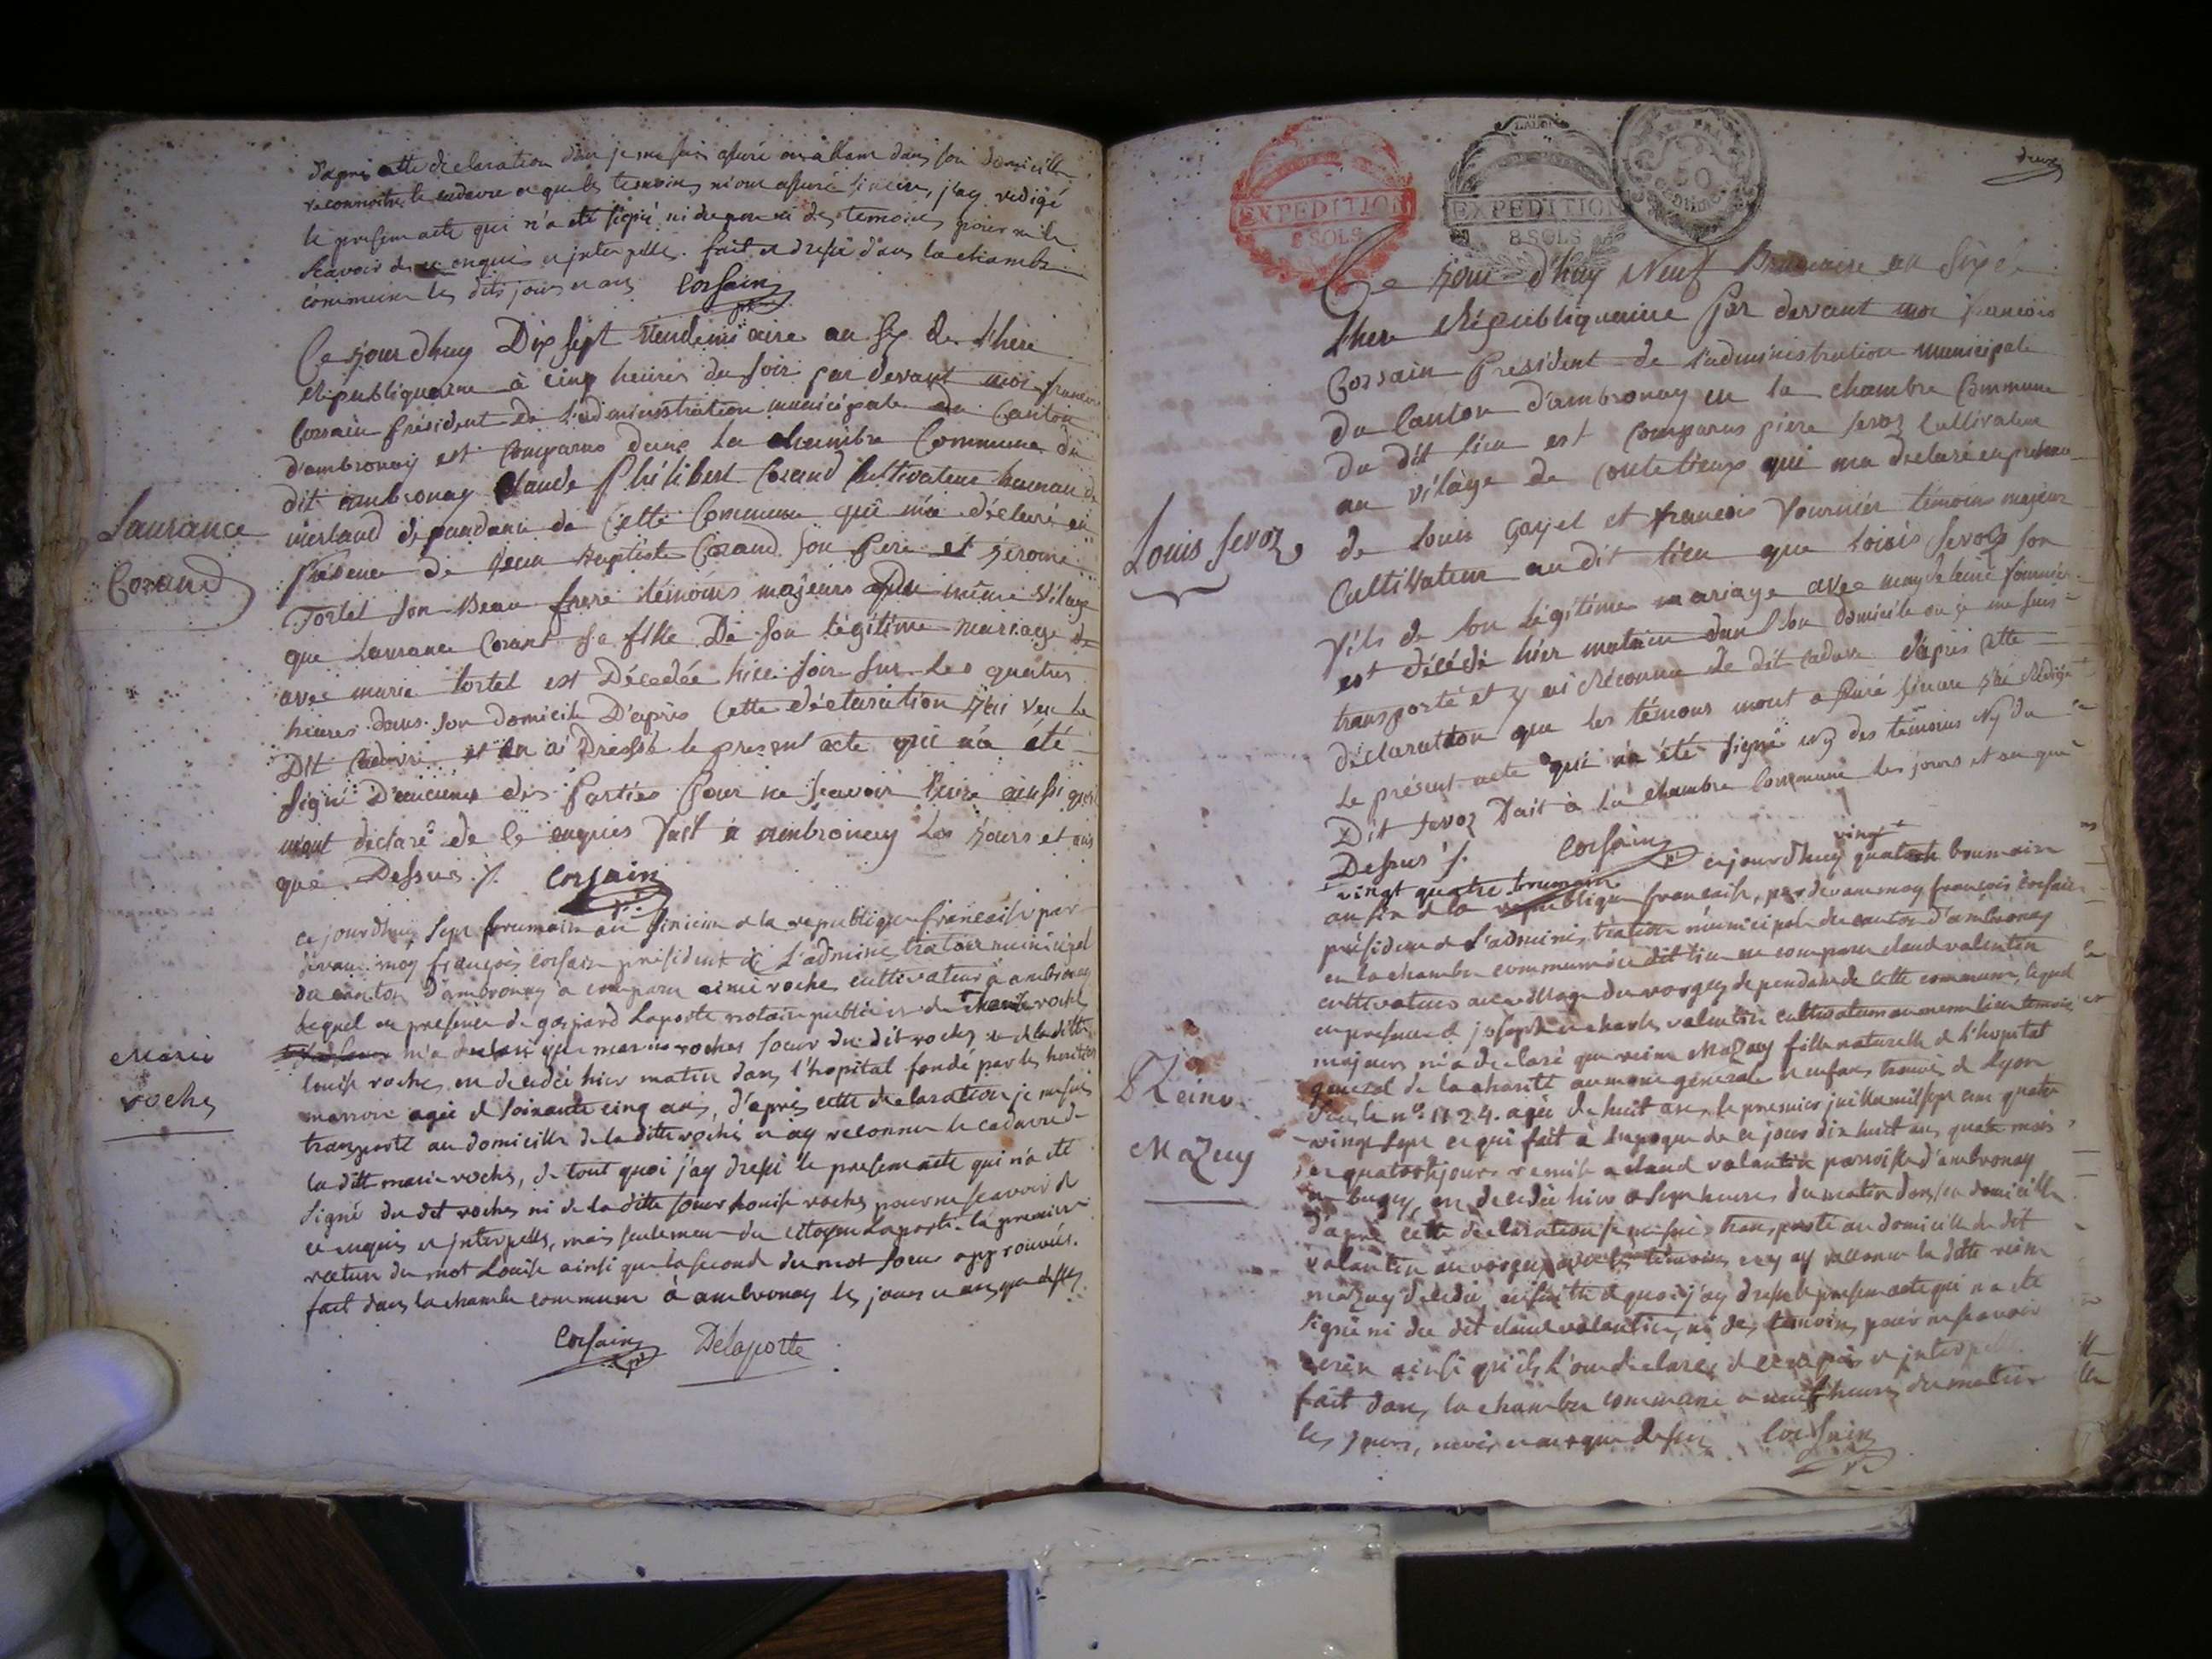 d'apres cette declaration dont je me suis assuré en allant dans son domicille
reconnoitre le cadavre et que les temoins m'ont assuré sincere, j'ay redigé
le present acte qui n'a eté signé ni du pere ni des temoins pour ne le
scavoir de ce enquis et interpellés. fait et dressé dans la chambre
commune les dits jours et ans Corsain
Ce Jourd'huy Dix sept vendemiaire an six de l'here
républiquaine à cinq heures du soir par devant moi francois
Corsain Président de l'administration municipale du Canton
d'ambronay est comparus dans la chambre Commune du
dit ambronay Claude Philibert Corand Cultivateur hameau de
merland dependant de Cette Commune qui m'a déclaré en
Présence de Jean Baptiste Corand son Pere et Jerome
Tortel son Beau frere témoins majeurs du même vilage
que Laurance Corant sa fille De son légitime mariage
avec marie tortel est Décedée hier soir sur les quatres
heures dans son domicile D'après Cette déclaration J'ai veu le
Dit Cadavre et en ai Dressé le present acte qui n'a été
signé D'aucunes des Parties Pour ne scavoir Ecrire ainsi qu'ils
m'ont declaré de ce enquis Fait à ambronay Les Jours et ans
que Dessus ./. Corsain
Laurance
Corand
ce jourdhuy sept frumaire an sixieme de la republique francaise par
devant moy françois corsain president de l'administration municipal
du canton d'ambronay a comparu aimé roche cultivateur à ambronay
lequel en presence de gaspard Laporte notaire public et de Louise roche
m'a declaré que marie roches soeur du dit roches et de la ditte
louise roches est decedée hier matin dans l'hopital fondé par les heritiers
marron agée de soixante cinq ans, d'apres cette declaration je me suis
transporté au domicille de la ditte roche et ay reconnu le cadavre de
la ditte marie roches, de tout quoi j'ay dressé le present acte qui n'a eté
signé du dit roches ni de la ditte soeur Louise roches pour ne scavoir de
ce enquis et interpellés, mais seulement du citoyen Laporte. la premiere
rature du mot Louise ainsi que la seconde du mot soeur approuvées.
fait dans la chambre commune à ambronay les jours et ans que dessus
Marie
roches
Corsain Delaporte
EXPEDITION
8 SOLS
EXPEDITION
8 SOLS
50
centimes
deux
Ce jour d'huy Neuf Brumaire an six de
l'here Républiquaine Par devant moi francois
Corsain President de l'administration municipale
du Canton d'ambronay en la chambre Commune
du dit lieu est comparus piere Sevoz Cultivateur
au vilage de coutelieux qui ma declaré en présence
de Louis Gayel et francois Fournier temoins majeurs
Cultivateur au dit lieu que Loiois Sevoz son
Fils de son légitime mariage avec magdeleine fournier
est décédé hier matin dans son domicile ou je me suis
transporté et y ai Réconnu le dit cadavre d'apres cette
déclaration que les témoins mont assuré sincere j'ai Rédigé
Le présent acte qui n'a été signé ny des témoins Ny du
Dit Sevoz Fait à la chambre Commune les jours et an que
Dessus ./. Corsain
Louis Sevoz
vingt quatre brumaire ce jourdhuy vingt quatre brumaire
an six de la republique francaise, par devant moy françois corsain
president de l'administration municipale du canton d'ambronay
en la chambre commune du dit lieu est comparu claud valentin
cultivateur au village du vorgey dependant de cette commune, lequel
en presence de joseph et charles valentin cultivateurs au meme lieu temoins
majeurs m'a declaré que reine Mazuy fille naturelle de l'hopital
general de la charité aumone generale et enfans trouvés de Lyon
sous le n°. 1124. agée de huit ans, le premier juillet mil sept cent quatre
vingt sept ce qui fait à l'epoque de ce jour dix huit ans quatre mois
et quatorze jours remise a claud valantin parroisse d'ambronay
en bugey, est decedée hier a sept heures du matin dans son domicille
d'apres cette declaration je me suis transporté au domicille du dit
valantin au vorgey avec les temoins et y ay reconnu la ditte reine
mazuy decedée ensuitte de quoi j'ay dressé le present acte qui n'a eté
signé ni du dit claud valantin ni des temoins pour ne scavoir
ecrire ainsi qu'ils l'ont declarés de ce enquis et interpellés
fait dans la chambre commune a neuf heures du matin
les jours, mois et an que dessus Corsain
Reine
Mazuy